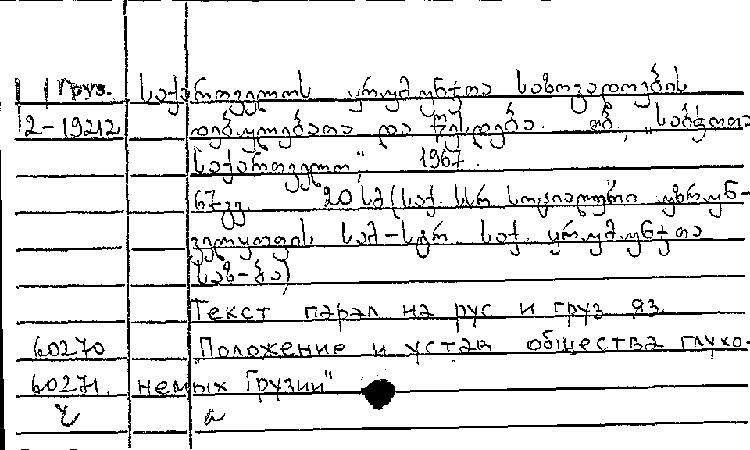 Груз. საქართველოს ყრუმუნჯთა საზოგადოების
2-19212 დებულებათა და წესდება. თბ., „საბჭოთა
საქართველო“, 1967.
67 გვ. 20 სმ (საქ. სსრ სოციალური უზრუნ-
ველყოფის სამ-სტრო. საქ. ყრუმუნჯთა
საზ-ბა)
Текст парал на рус и груз яз.
60270 „Положение и устав общества глухо-
60271. немых Грузии"